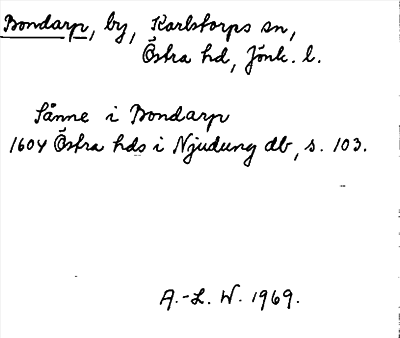 Bondarp, by, Karlstorps sn,
Östra hd, Jönk. l.
Sånne i Bondarp
1604 Östra hds i Njudung db, s. 103.
A.-L. W. 1969.